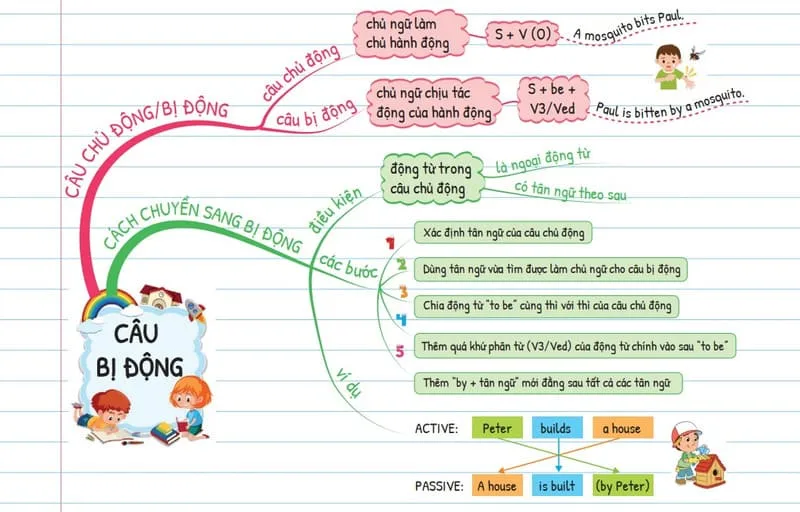 CÂU BỊ ĐỘNG
CÂU CHỦ ĐỘNG/BỊ ĐỘNG
câu chủ động
chủ ngữ làm
chủ hành động
S + V (O)
A mosquito bits Paul.
câu bị động
chủ ngữ chịu tác
động của hành động
S + be +
V3/Ved
Paul is bitten by a mosquito.
CÁCH CHUYỂN SANG BỊ ĐỘNG
điều kiện
động từ trong
câu chủ động
là ngoại động từ
có tân ngữ theo sau
các bước
1
Xác định tân ngữ của câu chủ động
2
Dùng tân ngữ vừa tìm được làm chủ ngữ cho câu bị động
3
Chia động từ "to be" cùng thì với thì của câu chủ động
4
Thêm quá khứ phân từ (V3/Ved) của động từ chính vào sau "to be"
5
Thêm "by + tân ngữ" mới đằng sau tất cả các tân ngữ
ví dụ
ACTIVE: Peter builds a house
PASSIVE: A house is built (by Peter)